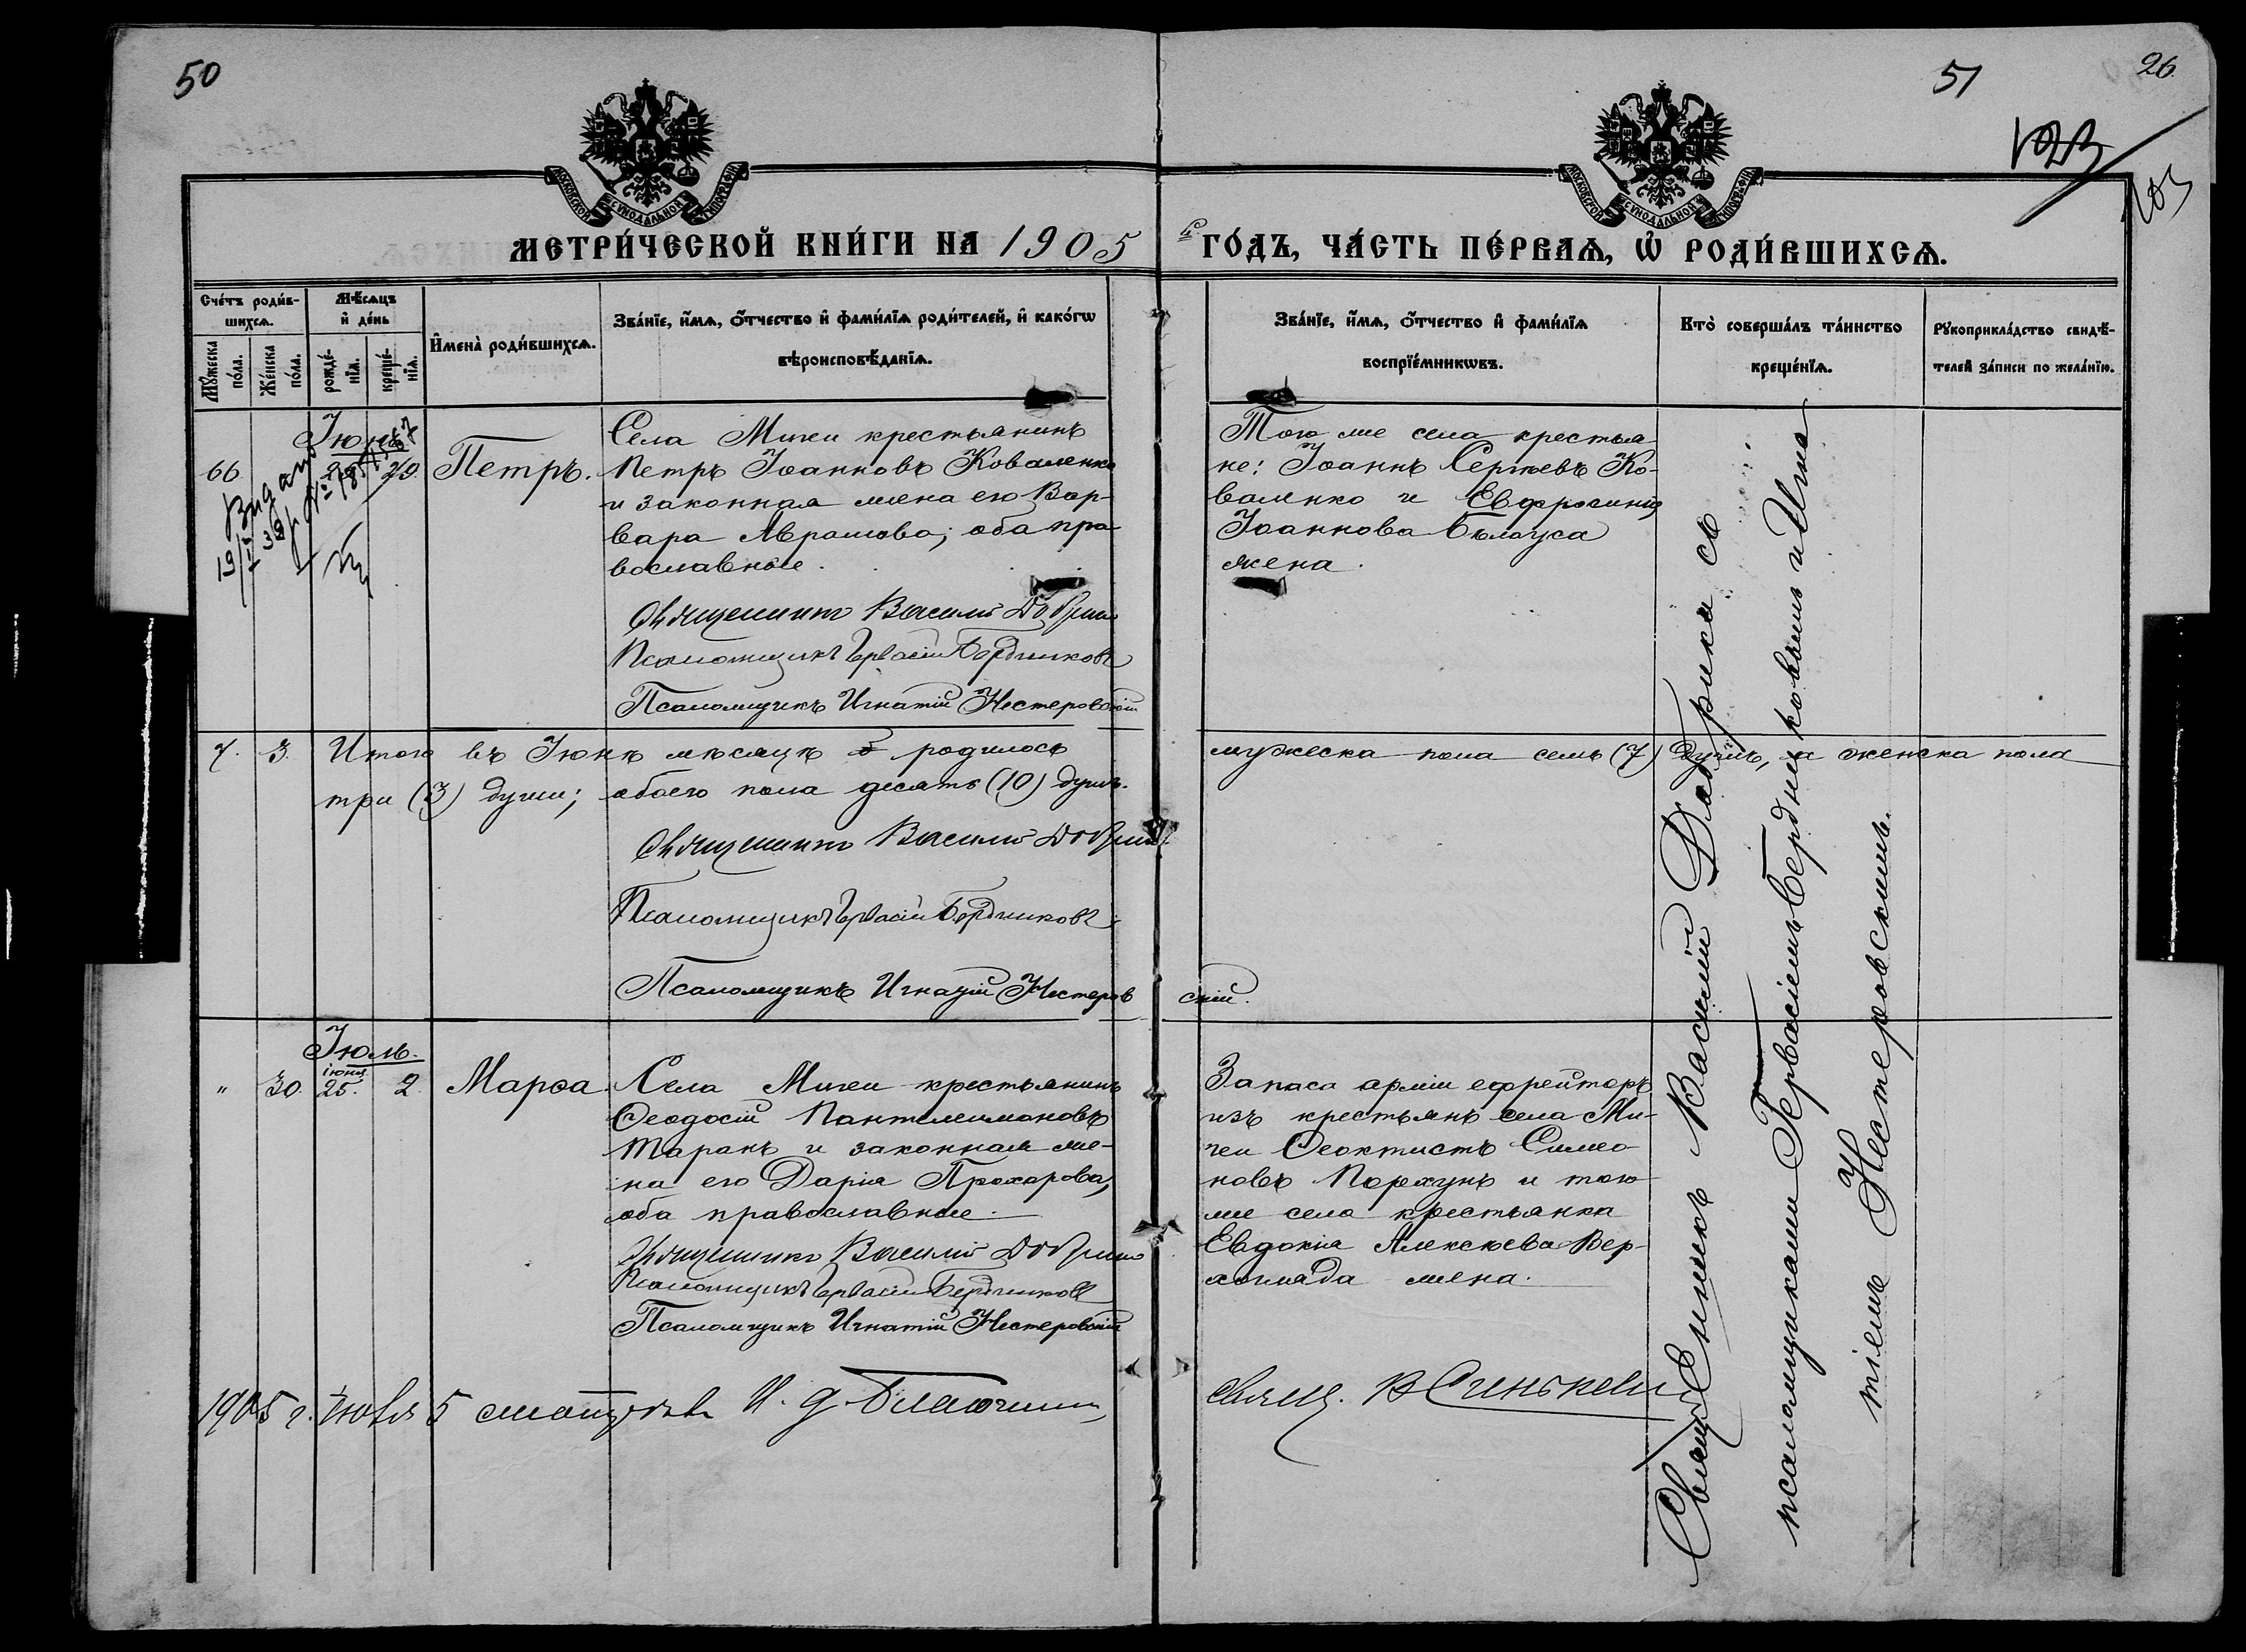 50
51
26
103
103
МОСКОВСКОЙ СѴНОДАЛЬНОЙ ТИПОГРАФІИ
МОСКОВСКОЙ СѴНОДАЛЬНОЙ ТИПОГРАФІИ
МЕТРИ́ЧЕСКОЙ КНИ́ГИ НА 1905
ГО́ДЪ, ЧА́СТЬ ПЕ́РВАѦ, Ѡ҆ РОДИ́ВШИХСѦ.
Сче́тъ роди́в-
шихсѧ.
Мꙋ́жеска по́ла.
Же́нска по́ла.
Мѣ́сѧцъ
и҆ де́нь
рожде́-нїѧ.
креще́-нїѧ.
И҆мена̀ роди́вшихсѧ.
Зва́нїе, и҆́мѧ, ѻ҆́тчество и҆ фами́лїѧ роди́телей, и҆ како́гѡ
вѣроисповѣ́данїѧ.
Зва́нїе, и҆́мѧ, ѻ҆́тчество и҆ фами́лїѧ
воспрїе́мникѡвъ.
Кто̀ соверша́лъ та́инство
креще́нїѧ.
Рꙋкоприкла́дство свидѣ́-
телей за́писи по жела́нїю.
Іюнь
66
29.
Петръ.
Села Мигеи крестьянинъ
Петръ Іоанновъ Коваленко
и законная жена его Вар-
вара Аврамова; оба пра-
вославные.
Священникъ Василій Добрик
Псаломщикъ Гервасій Бердниковъ
Псаломщикъ Игнатій Нестеровскій
Того же села крестья-
не: Іоаннъ Сергіевъ Ко-
валенко и Евфросинія
Іоаннова Бѣлоуса
жена.
7. 3. Итого въ Іюнѣ мѣсяцѣ родилось мужеска пола семь (7) душъ, а женска пола
три (3) души; обоего пола десять (10) душъ.
Священникъ Василій Добрик
Псаломщикъ Гервасій Бердниковъ
Псаломщикъ Игнатій Нестеровскій.
Іюль.
іюня
" 30. 25. 2.
Марѳа.
Села Мигеи крестьянинъ
Ѳеодосій Пантелеимоновъ
Таранъ и законная же-
на его Дарія Прохорова,
оба православные.
Священникъ Василій Добрик
Псаломщикъ Гервасій Бердниковъ
Псаломщикъ Игнатій Нестеровскій
Запаса арміи ефрейторъ
изъ крестьянъ села Ми-
геи Ѳеоктистъ Симео-
новъ Порхунъ и того
же села крестьянка
Евдокія Алексіева Вер-
жена.
Священникъ Василій Добрикъ съ
псаломщиками Гервасіемъ Бердниковымъ и Игна-
тіемъ Нестеровскимъ.
1905 г. Іюля 5 И. д. Благочин
свящ. В Синькевич